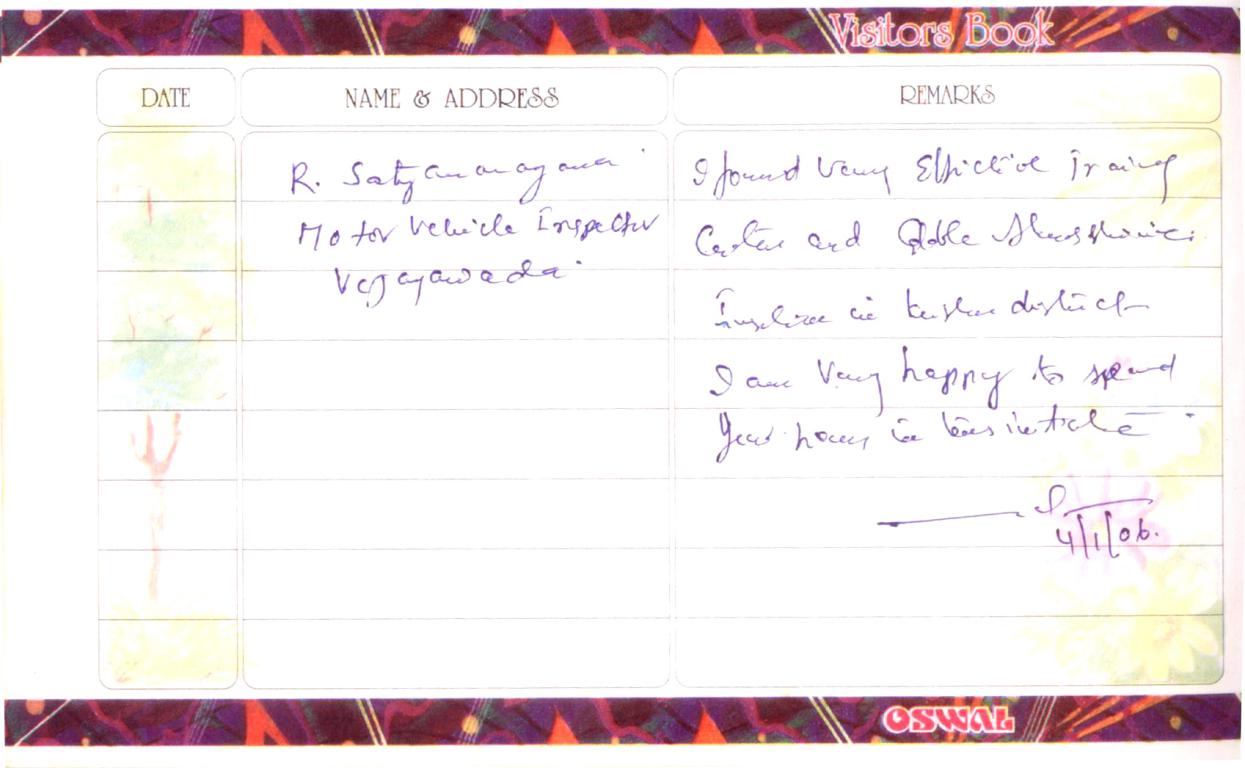 Visitors Book
DATE
NAME & ADDRESS
REMARKS
R. Satyanarayana
Motor Vehicle Inspector
Vijayawada
I found Very Effective Training
and
in district
I am Very happy to spend
hours in
4/1/06.
OSWAL